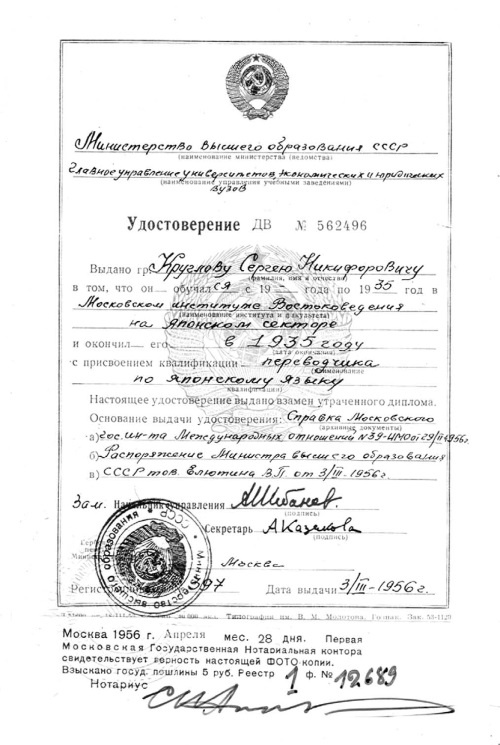 Министерство высшего образования СССР
(наименование министерства (ведомства)
Главное управление университетов, экономических и юридических
(наименование управления учебными заведениями)
вузов
Удостоверение ДВ № 562496
Выдано гр. Круглову Сергею Никифоровичу
(фамилия, имя и отчество)
в том, что он обучался с 19— года по 1935 год в
Московском институте Востоковедения
(наименование института и факультета)
на японском секторе
и окончил его в 1935 году
(дата окончания)
с присвоением квалификации переводчика
(наименование
по японскому языку
квалификации)
Настоящее удостоверение выдано взамен утраченного диплома.
Основание выдачи удостоверения: Справка Московского
(архивные документы)
а) гос. ин-та Международных отношений
б) Распоряжение Министра высшего образования
в) СССР тов. Елютина В.П. от 3/III-1956г.
Зам. Начальник управления
(подпись)
Секретарь А.Казакова
(подпись)
Москва
97 Дата выдачи 3/III-1956г.
Типография им. В. М. Молотова.
Министерство высшего образования СССР
Москва 1956 г. Апреля мес. 28 дня. Первая
Московская Государственная Нотариальная контора
свидетельствует верность настоящей ФОТО копии.
Взыскано госуд. пошлины 5 руб. Реестр 1 ф. № 12689
Нотариус